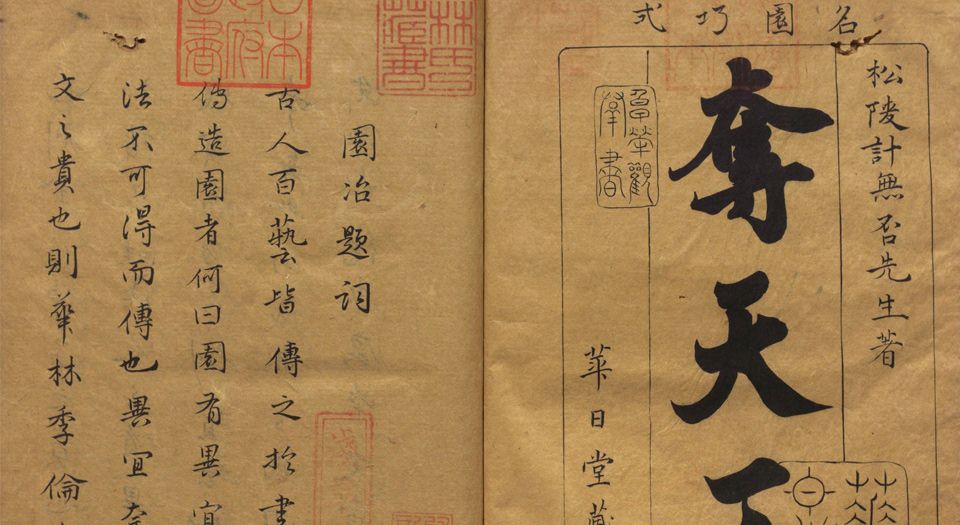 名園巧式
松陵計無否先生著
奪天
華日堂藏
林氏
藏書
園冶題詞
古人百藝皆傳之於書
傳造園者何曰園有異宜
法不可得而傳也異宜奈
文之貴也則華林季倫